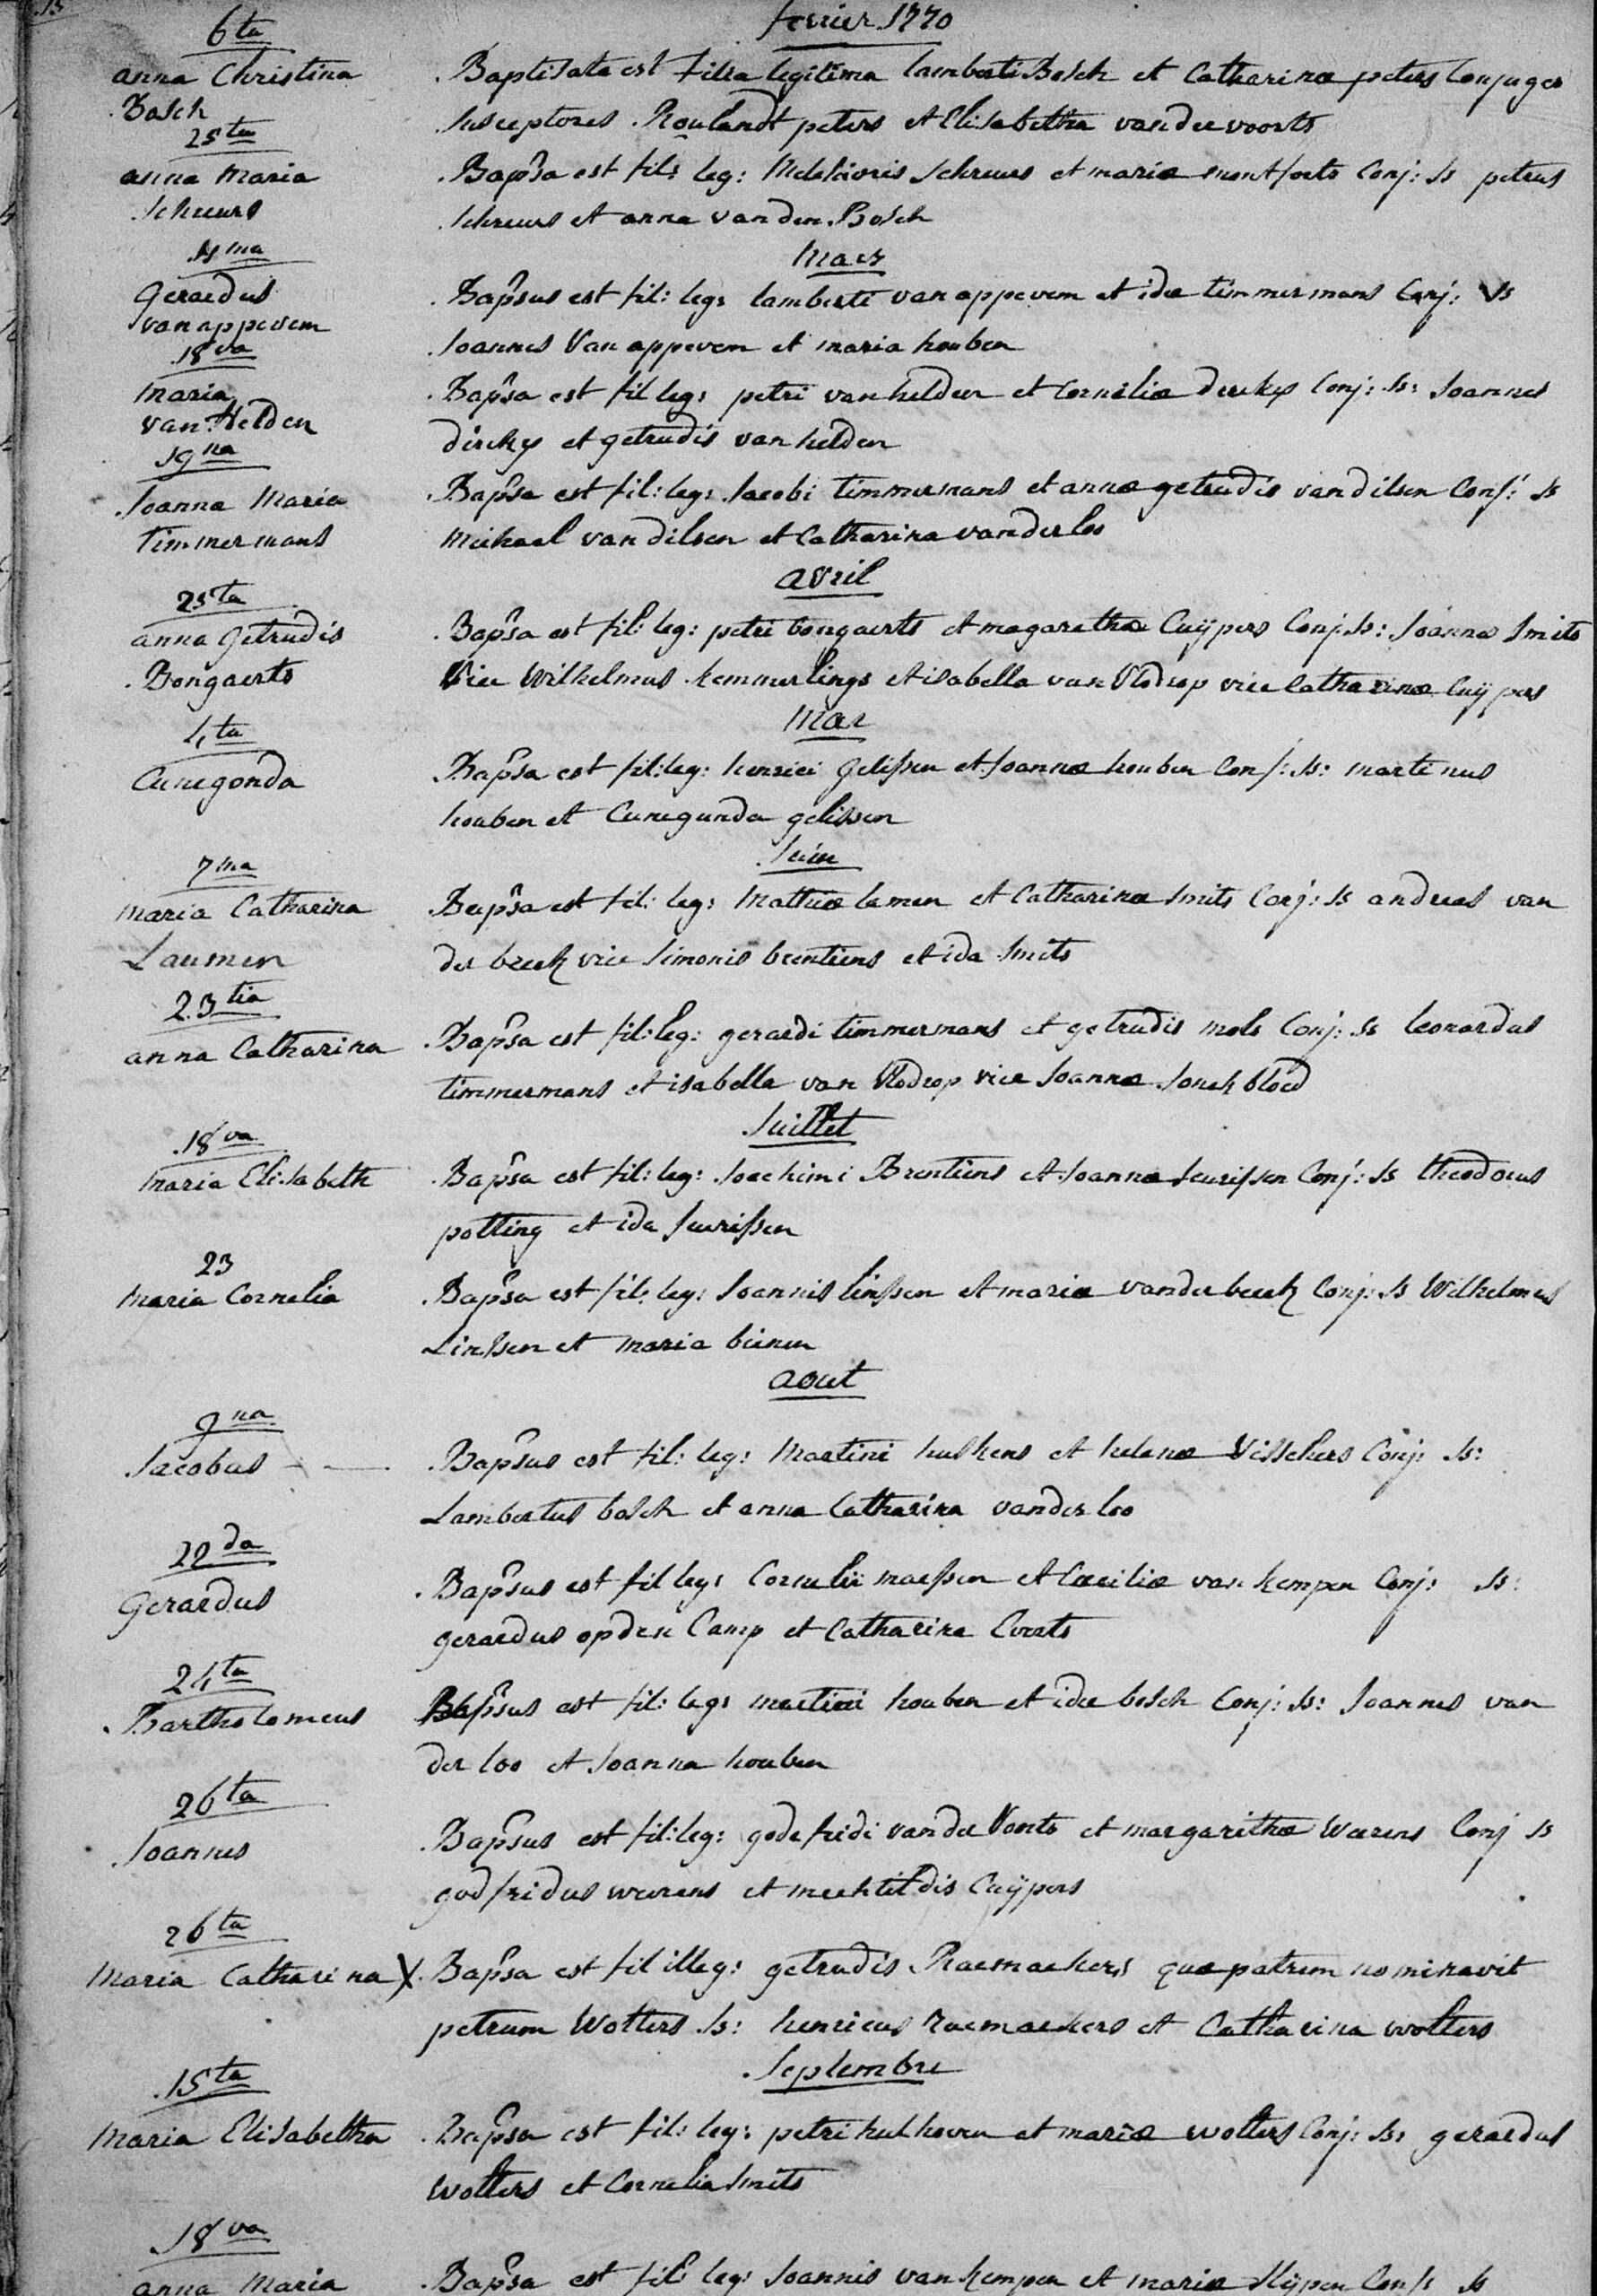 fevrier 1770
6ta
anna Christina
Bosch
Baptisata est filia legitima lamberti Bosch et Catharinæ peters Conjuges
Susceptores Roulandt peters et Elisabetha vandervoorts
25ta
anna Maria
Schreurs
Bapsa est fil: leg: Melchioris Schreurs et mariæ montforts Conj: Ss petrus
Schreurs et anna vanden Bosch
Maer
11ma
Gerardus
van appeven
Bapsus est fil: leg: lamberti van appeven et idæ timmermans Conj: Ss
Joannes Van appeven et maria houben
18va
maria
van Helden
Bapsa est fil leg: petri van helden et Corneliæ derckx Conj: Ss: Joannes
dirckx et getrudis van helden
19na
Joanna Maria
Timmermans
Bapsa est fil: leg: Jacobi Timmermans et annæ getrudis van dilsen Conj: Ss
Michael van dilsen et Catharina vanderloo
avril
25ta
anna Getrudis
Bongaerts
Bapsa est fil: leg: petri bongaerts et magarethæ Cuÿpers Conj: Ss: Joannes Smits
Vice Wilhelmus kemmerlings et isabella van Vlodrop vice Catharinæ Cuÿpers
Mai
4ta
Cunegonda
Bapsa est fil: leg: henrici Gelissen et Joannæ houben Conj: Ss: martinus
houben et Cunegunda gelissen
Juin
7ma
Maria Catharina
Laumen
Bapsa est fil: leg: Mathiæ lamen et Catharinæ Smits Conj: Ss andreas van
der beek vice Simonis brentiens et ida Smits
23tia
anna Catharina
Bapsa est fil: leg: gerardi timmermans et getrudis mols Conj: Ss leonardus
timmermans et isabella van Vlodrop vice Joannæ Jonckbloed
Juillet
18va
Maria Elisabeth
Bapsa est fil: leg: Joachimi Brentiens et Joannæ Jeurissen Conj: Ss theodorus
potting et ida Jeurissen
23
Maria Cornelia
Bapsa est fil: leg: Joannis linssen et mariæ vanderbeek Conj: Ss Wilhelmus
Linssen et maria bienen
aout
9na
Jacobus
Bapsus est fil: leg: Martini huskens et helenæ Visschers Conj: Ss:
Lambertus bosch et anna Catharina vander loo
22da
Gerardus
Bapsus est fil leg: Cornelii maessen et Cæciliæ van kempen Conj: Ss:
gerardus opden Camp et Catharina Coorts
24ta
Bartholomeus
Bapsus est fil: leg: martini houben et idæ bosch Conj: Ss: Joannes van
der loo et Joanna houben
26ta
Joannes
Bapsus est fil: leg: godefridi vander Voorts et margarithæ Weerens Conj Ss
godfridus weerens et mechtildis Cuÿpers
26ta
Maria Catharina X
Bapsa est fil illeg: getrudis Raemaekers quæ patrem nominavit
petrum Wolters Ss: henricus Raemaekers et Catharina wolters
Septembre
15ta
Maria Elisabetha
Bapsa est fil: leg: petri hulhoven et mariæ wolters Conj: Ss: gerardus
Wolters et Cornelia Smits
18va
anna Maria
Bapsa est fil leg: Joannis van kempen et mariæ Slÿpen Conj: Ss